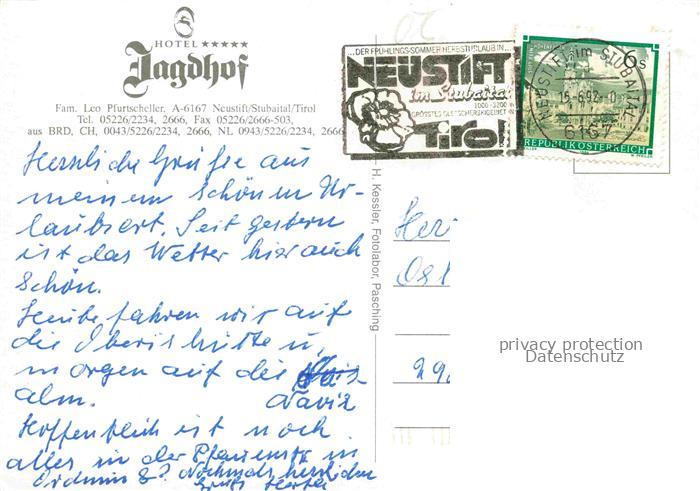 HOTEL ★★★★★
Jagdhof
Fam. Leo Pfurtscheller, A-6167 Neustift/Stubaital/Tirol
Tel. 05226/2234, 2666, Fax 05226/2666-503,
aus BRD, CH, 0043/5226/2234, 2666, NL 0943/5226/2234, 2666
Herzliche Grüße aus
meinem schönen Ur-
laubsort. Seit gestern
ist das Wetter hier auch
schön.
Heute fahren wir auf
die Oberishütte u.
morgen auf die
alm. Navis
Hoffentlich ist noch
alles in der Pfauenstr. in
Ordnung? Nochmals herzlichen
Gruß Herta
...DER FRÜHLINGS-SOMMER-HERBSTURLAUB IN...
NEUSTIFT
im Stubaital
1000-3200 m
GRÖSSTES GLETSCHERSKIGEBIET IN
Tirol
NEUSTIFT im STUBAITAL
6167
6 S
REPUBLIK ÖSTERREICH
H. Kessler, Fotolabor, Pasching
Her
Ost
29
privacy protection
Datenschutz